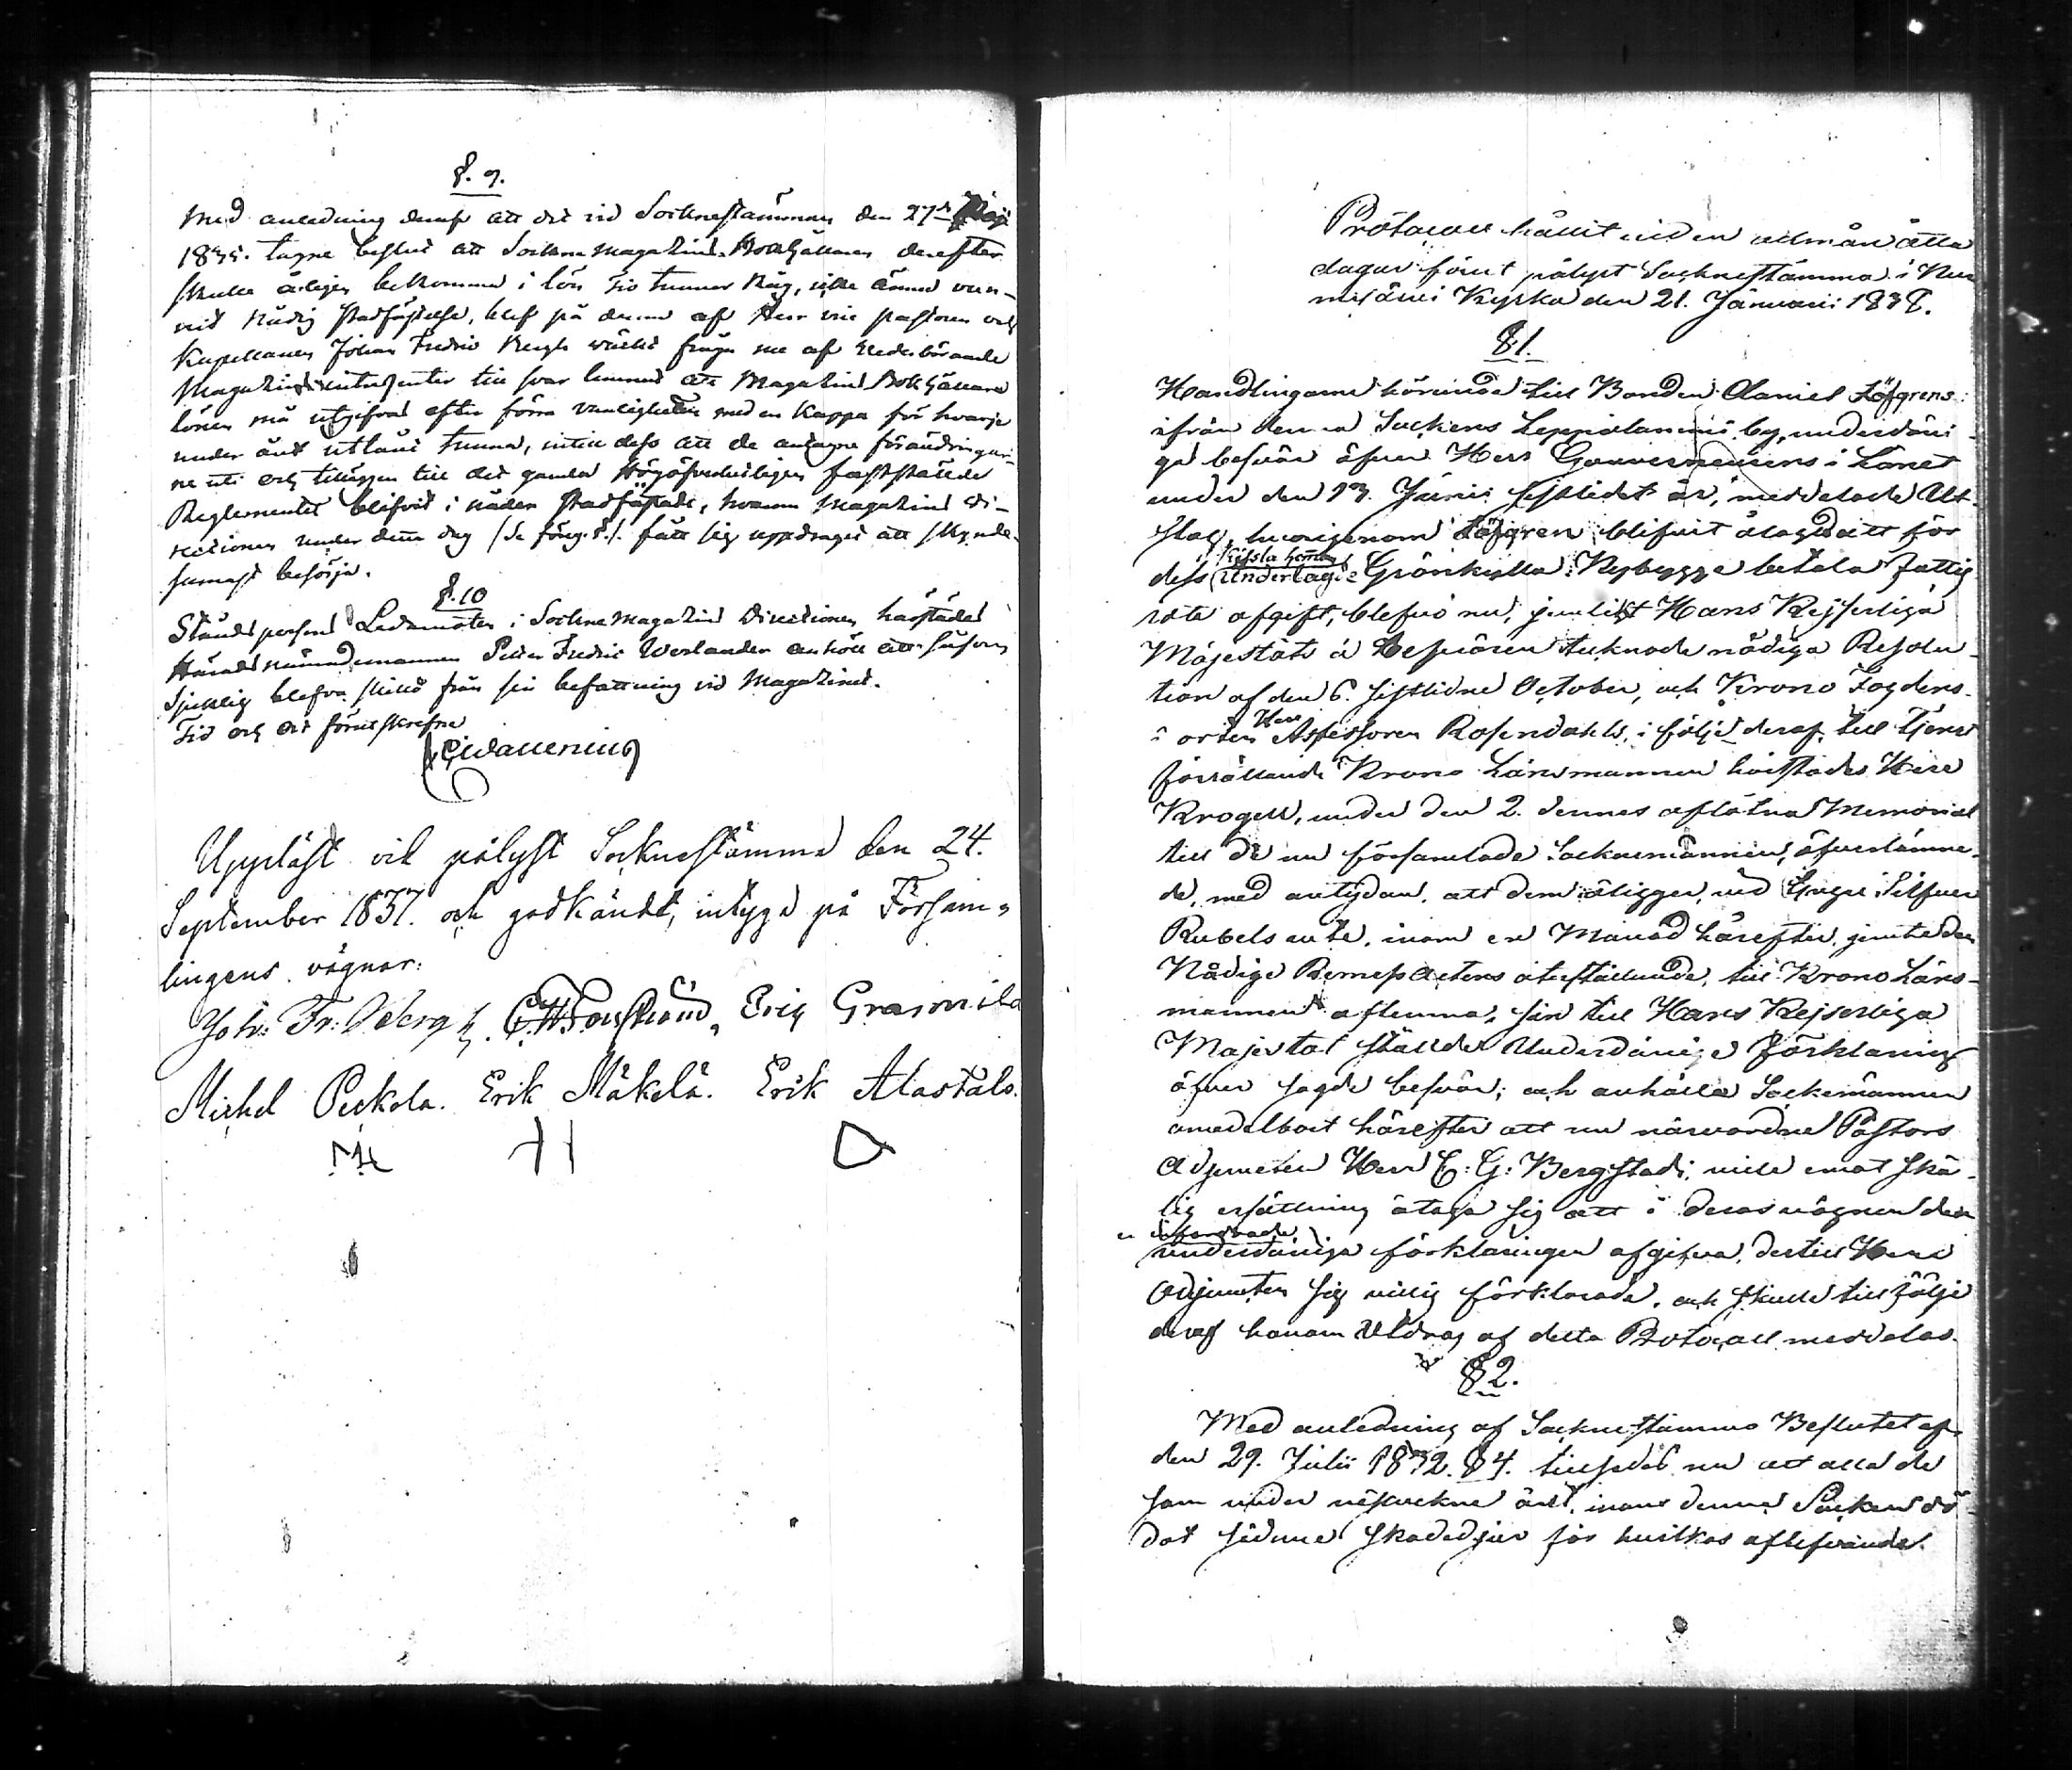 §. 9.
Med anledning deraf att det vid Socknestämman den 27de Maji
1835. tagne beslut att Sockne Magazins Bokhållaren derefter
skulle årligen bekomma i lön tio tunnor Råg, icke ännu vun-
nit Nådig stadfästelse, blef på denna af Herr vice pastoren och
Kapellanen Johan Fredric Bergh väckt fråga nu af vederbörande
Magazins intressenter till svar lemnad att Magazins Bokhållare
lönen må utgifvas efter förra vanligheten med en Kappa för hvarje
under året utlånt tunna, intill dess att de antagne förändringar-
ne uti och tilläggen till det gamla Högöfverhetligen fastställde
Reglementet blifvit i nåder stadfästade, hvarom Magazins Di-
rectionen under denna dag /se föreg. §./ fått sig uppdraget att skynda-
samast besörja.
§. 10
Ståndspersons Ledamoten i Sockne Magazins Directionen härstädes
Häradsnämndemannen Petter Fredric Werlander anhöll att såsom
sjuklig blefva skild från sin befattning vid Magazinet.
Tid och Ort förutskrefne
Uppläst vid pålyst Socknestämma den 24.
September 1837. och godkändt, intyga på Försam-
lingens vägnar:
Joh: Fr: Bergh. Eric Grasmila
Michel Peckola. Erik Mäkelä. Erik Alastalo.
Protocoll hållit vid en allmän åtta
dagar förut pålyst Socknestämma i Nur
mijärvi Kyrka den 21. Januarii 1838.
§ 1.
Handlingarne hörande till Bonden Daniel Löfgrens
ifrån denna Sockens Leppälammi by, underdåni-
ga besvär öfver Herr Gouverneurens i Länet
under den 13. Junii sistledet år, meddelade Ut-
slag, hvarigenom Löfgren blifvit ålagd att för
dess Kyssla heman
underlagde Grönkulla Nybygge betala fattig
rote afgift, blefvo nu, jemlikt Hans Kejserliga
Majestäts å Besvären tecknade nådiga Resolu-
tion af den 6. sistlidne October, och Krono Fogdens
i orten Herr Assessoren Rosendahls, i följd deraf till tjenst
förrättande Krono Länsmannen härstädes Herr
Krogell, under den 2. dennes aflåtna Memorial
till de nu församlade Socknemännen, öfverlämna-
de, med antydan, att dem åligger, vid tjugu Silfver
Rubels vite, inom en Månad härefter, jemte den
Nådige Remiss Actens återställande, till Krono Läns-
mannen aflemna, sin till Hans Kejserliga
Majestät ställda Underdånige förklaring
öfver sagde besvär; och anhålla Sockenmännen
omedelbart härefter att nu närvarande Pastors
Adjuncten Herr C: G: Bergstadi, ville emot skä-
lig ersättning åtaga sig att i deras vägnar den
infordrade
underdåniga förklaringen afgifva, dertill Herr
Adjuncten sig villig förklarade, och skulle till följe
deraf honom Utdrag af detta Protocoll meddelas.
§ 2.
Med anledning af Socknestämmo Beslutet af
den 29. Julii 1832. § 4. tillsades nu att alla de
som under nästvekne året, inom denna Socken dö-
dat sådane skadedjur för hvilkas aflefvande